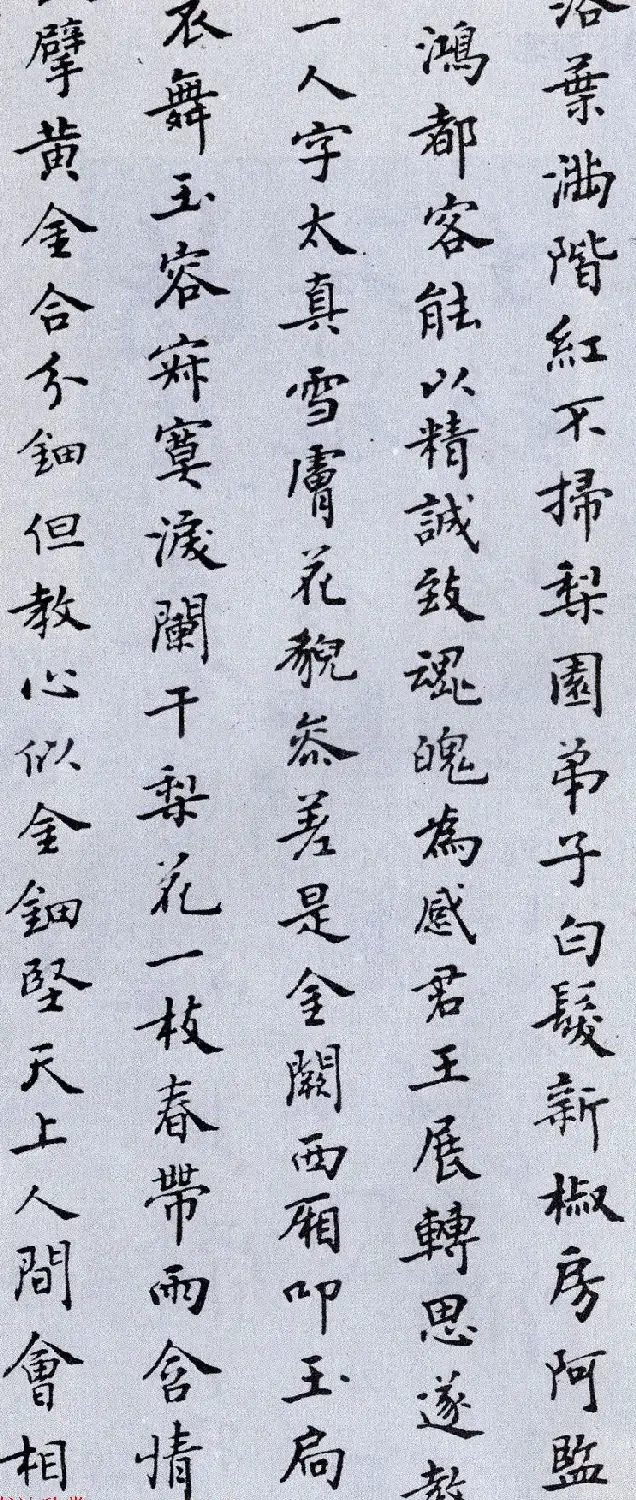 落葉滿階紅不掃梨園弟子白髮新椒房阿監
鴻都客能以精誠致魂魄為感君王展轉思遂教
一人字太真雪膚花貌叅差是金闕西厢叩玉扃
衣舞玉容寂寞淚闌干梨花一枝春帶雨含情
擘黄金合分鈿但教心似金鈿堅天上人間會相